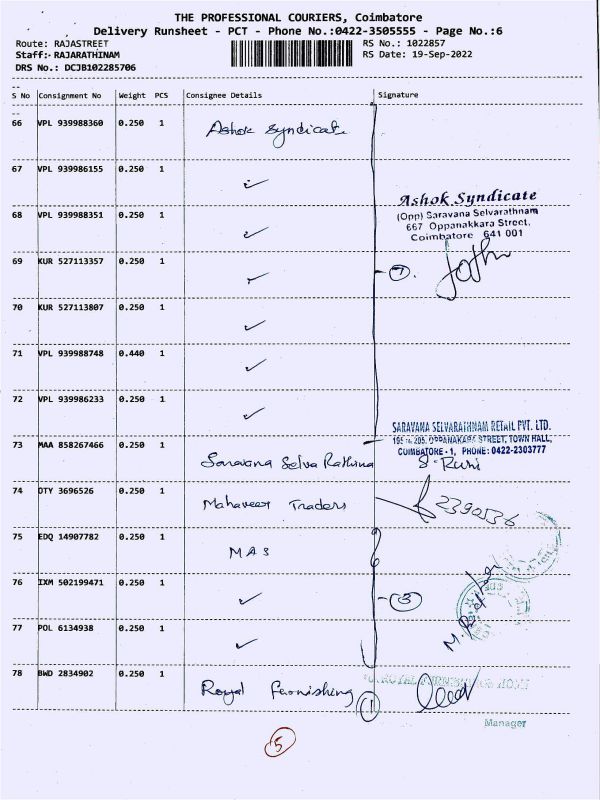 THE PROFESSIONAL COURIERS, Coimbatore
Delivery Runsheet - PCT - Phone No.:0422-3505555 - Page No.:6
Route: RAJASTREET RS No.: 1022857
Staff:- RAJARATHINAM RS Date: 19-Sep-2022
DRS No.: DCJB102285706
S No Consignment No Weight PCS Consignee Details Signature
66 VPL 939988360 0.250 1 Ashok Syndicate
67 VPL 939986155 0.250 1
Ashok Syndicate
(Opp) Saravana Selvarathnam
68 VPL 939988351 0.250 1
667 Oppanakkara Street,
Coimbatore 641 001
69 KUR 527113357 0.250 1 7
70 KUR 527113807 0.250 1
71 VPL 939988748 0.440 1
72 VPL 939986233 0.250 1
SARAVANA SELVARATHNAM RETAIL PVT. LTD.
OPPANAKARA STREET, TOWN HALL,
73 MAA 858267466 0.250 1 COIMBATORE - 1, PHONE: 0422-2303777
Saravana Selva Rathina
74 DTY 3696526 0.250 1 Mahaveer Traders
75 EDQ 14907782 0.250 1 MAS
76 IXM 502199471 0.250 1 3
77 POL 6134938 0.250 1
78 BWD 2834902 0.250 1 Royal Furnishing 1
Manager
5